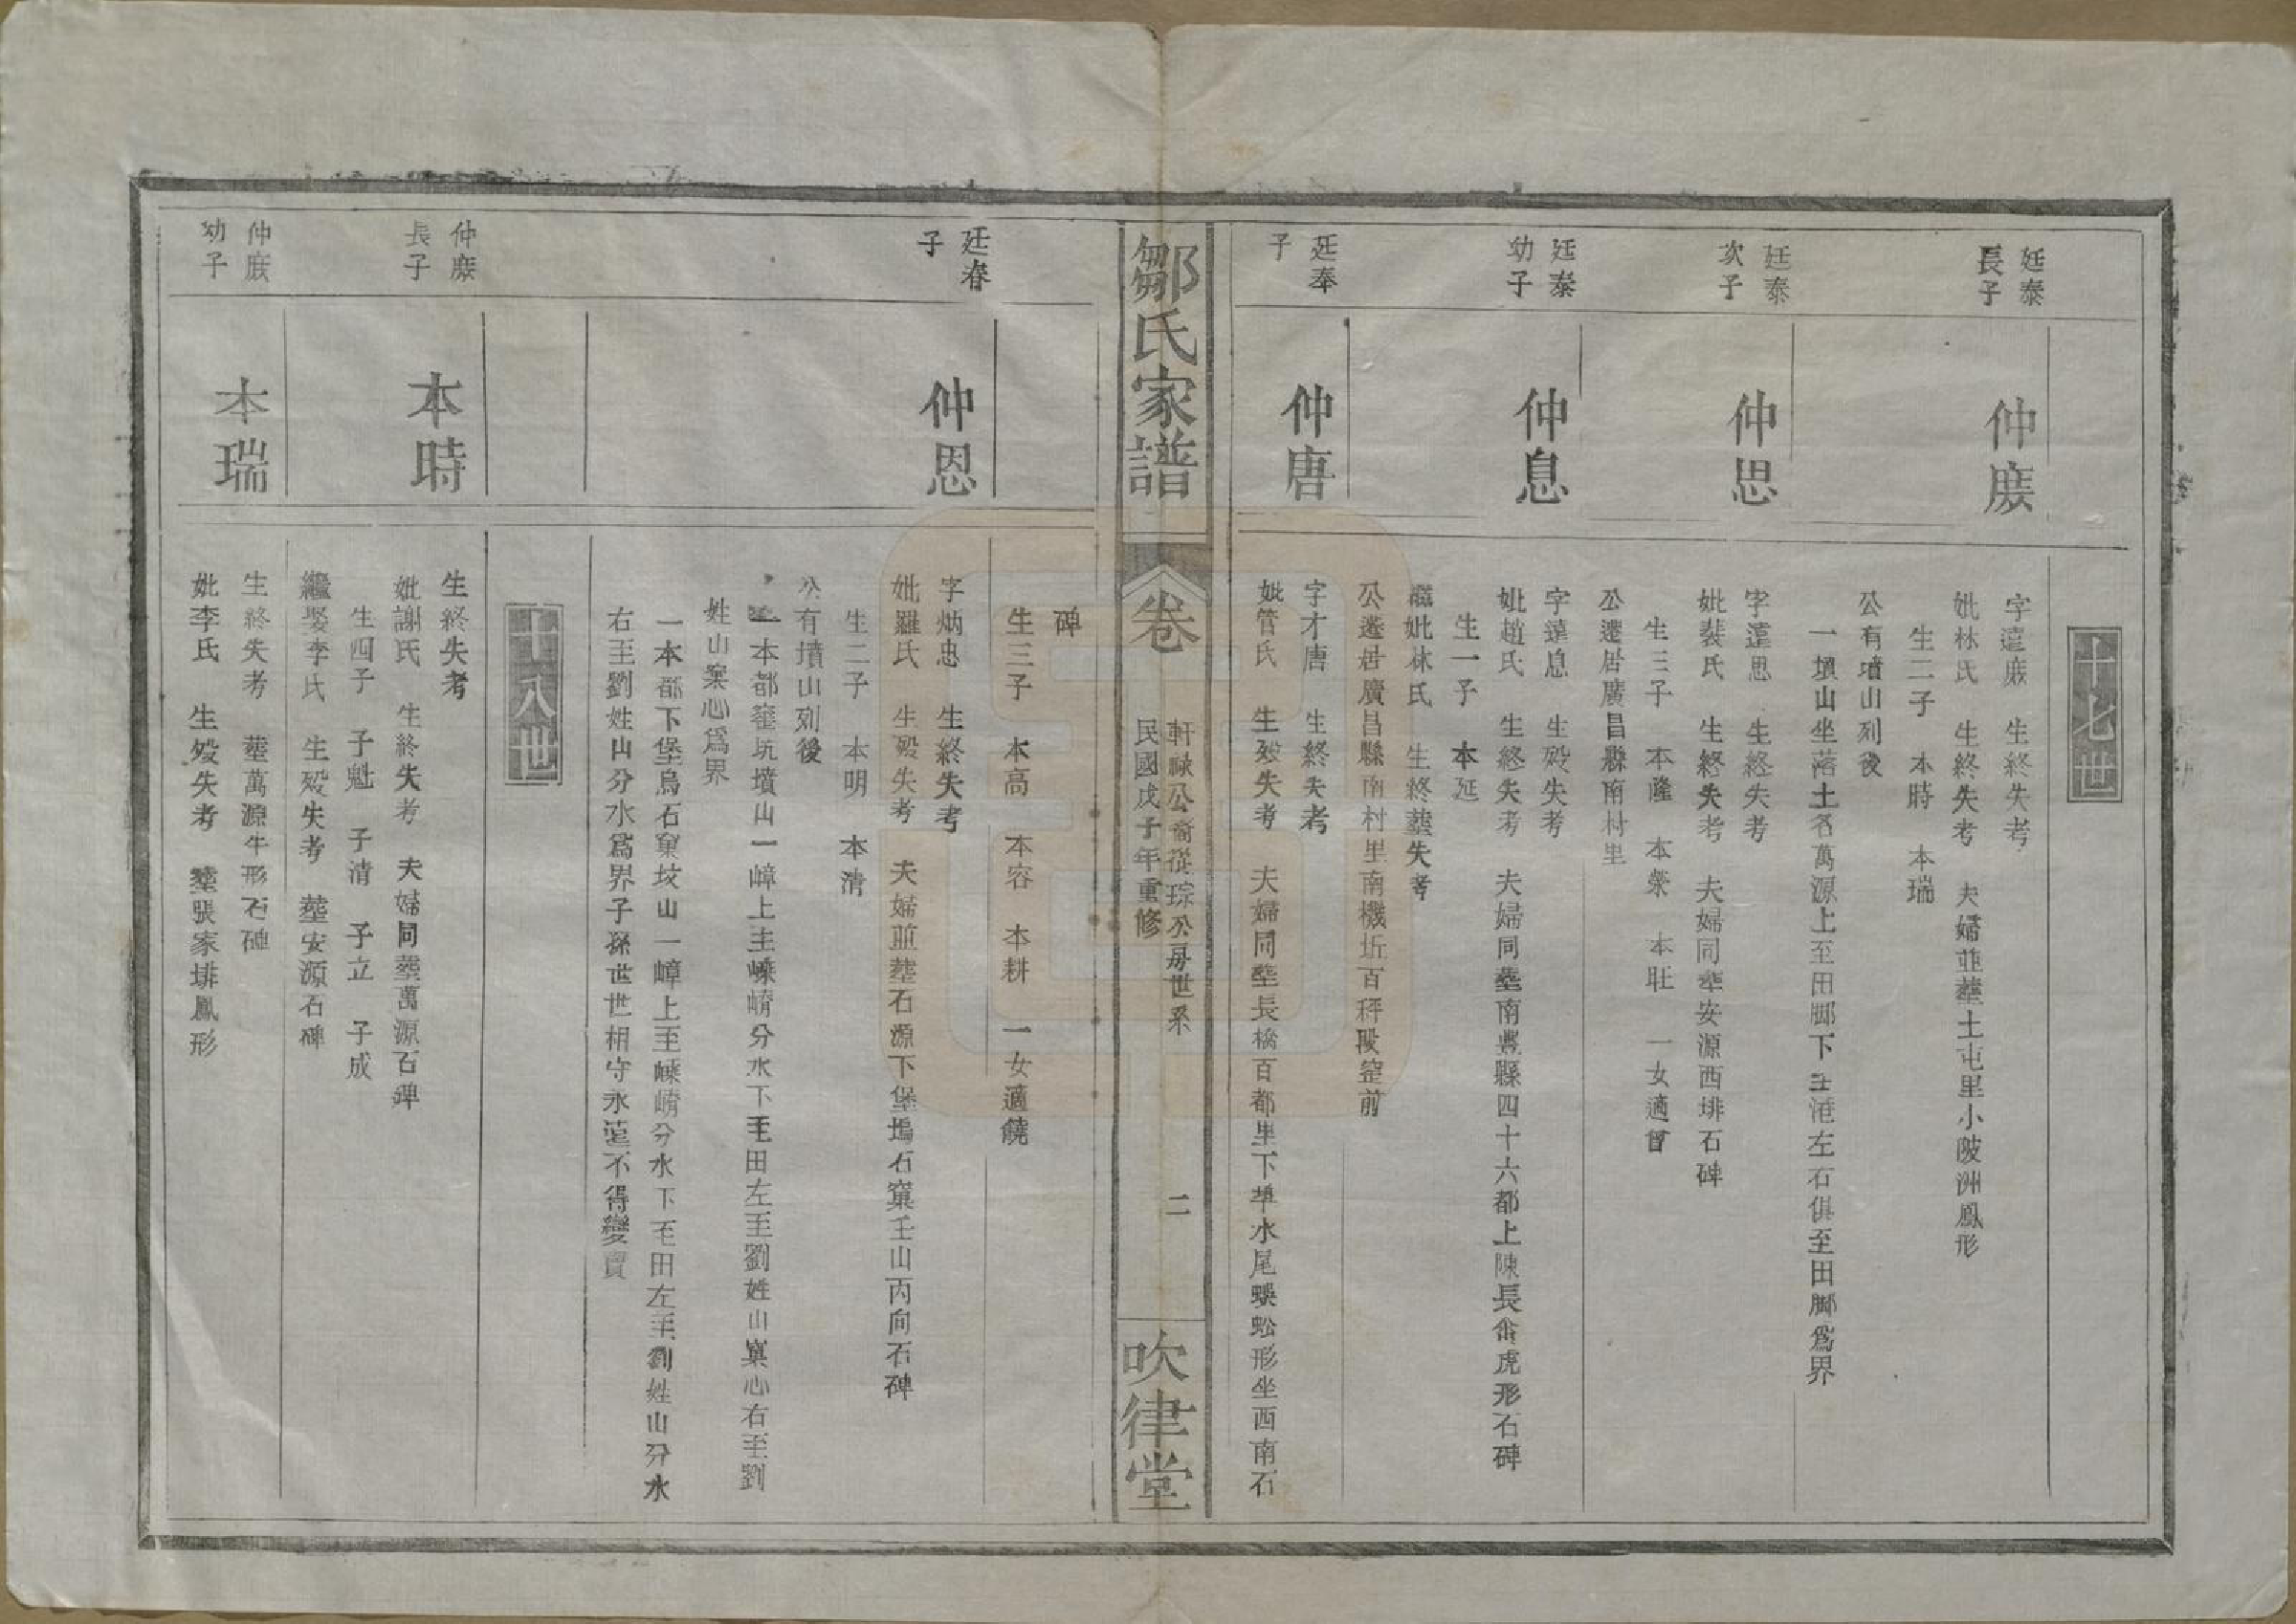 十七世
廷泰
長子
仲䕃
字遠䕃 生終失考
妣林氏 生終失考 夫婦並塟土屯里小陂洲鳳形
生二子 本時 本瑞
公有墳山列後
一墳山坐落土名萬源上至田脚下至港左右俱至田脚爲界
廷泰
次子
仲思
字遠思 生終失考
妣裴氏 生終失考 夫婦同塟安源西排石碑
生三子 本隆 本榮 本旺 一女適曾
公遷居廣昌縣南村里
廷泰
幼子
仲息
字遠息 生歿失考
妣趙氏 生終失考 夫婦同塟南豊縣四十六都上陳長畬虎形石碑
生一子 本延
繼妣林氏 生終塟失考
公遷居廣昌縣南村里南機坵百秤段窰前
廷奉
子
仲唐
字才唐 生終失考
妣管氏 生歿失考 夫婦同塟長橋百都里下埠水尾蜈蚣形坐西南石
鄒氏家譜
卷
軒祿公裔從琮公房世系
民國戊子年重修
二
吹律堂
碑
生三子 本高 本容 本耕 一女適饒
廷春
子
仲恩
字炳忠 生終失考
妣羅氏 生歿失考 夫婦並塟石源下堡塢石窠壬山丙向石碑
生二子 本明 本清
公有墳山列後
一本都窰坑墳山一嶂上至嵊嵴分水下至田左至劉姓山窠心右至劉
姓山窠心爲界
一本都下堡烏石窠坟山一嶂上至嵊嵴分水下至田左至劉姓山分水
右至劉姓山分水爲界子孫世世相守永遠不得變賣
十八世
仲䕃
長子
本時
生終失考
妣謝氏 生終失考 夫婦同塟萬源石碑
生四子 子魁 子清 子立 子成
繼娶李氏 生歿失考 塟安源石碑
仲䕃
幼子
本瑞
生終失考 塟萬源牛形石碑
妣李氏 生歿失考 塟張家排鳳形